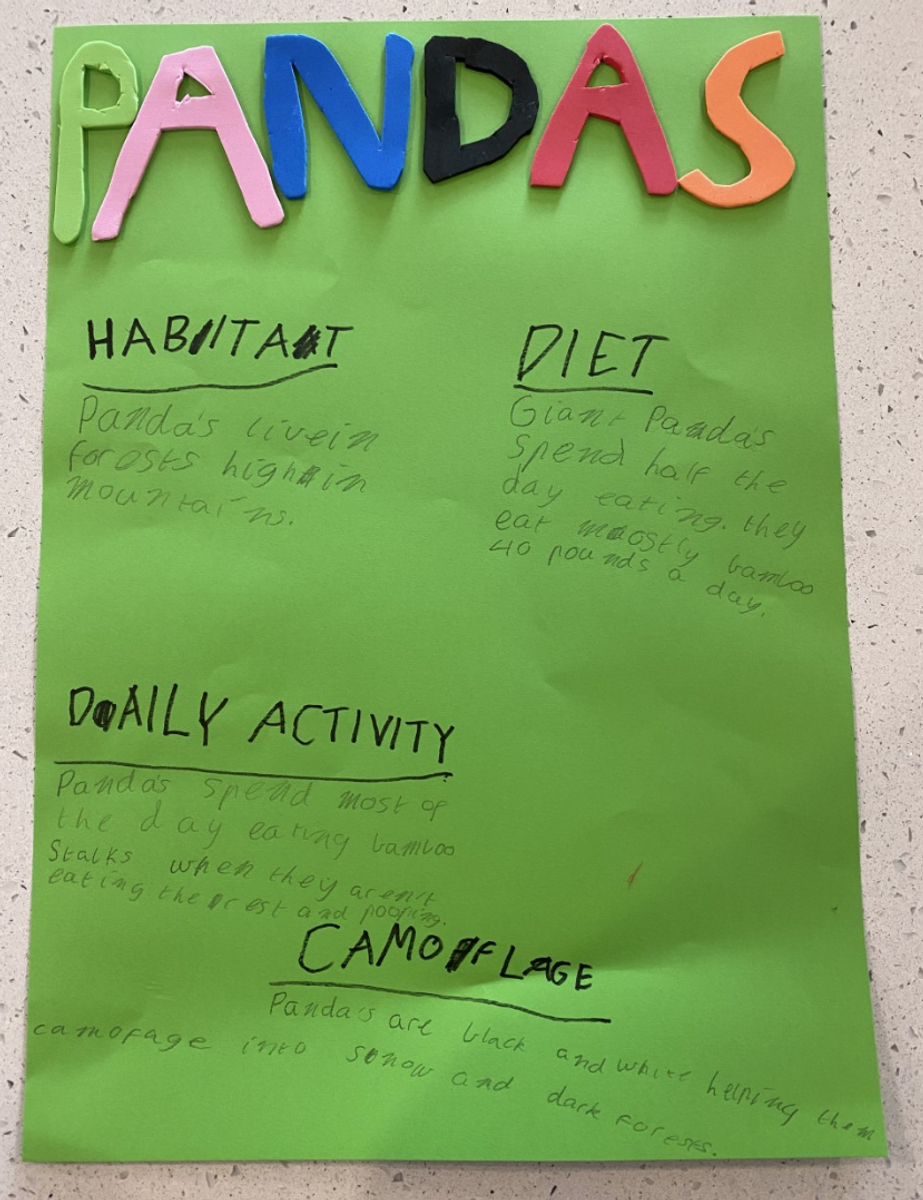 PANDAS
HABITAT
Panda's livein
forests high in
mountains.
DIET
Giant Panda's
spend half the
day eating. they
eat moostly bamboo
40 pounds a day.
DAILY ACTIVITY
Panda's spend most of
the day eating bamboo
Stalks when they arent
eating the rest and pooping.
CAMOFLAGE
Panda's are black and white helping them
camofage into snow and dark forests.